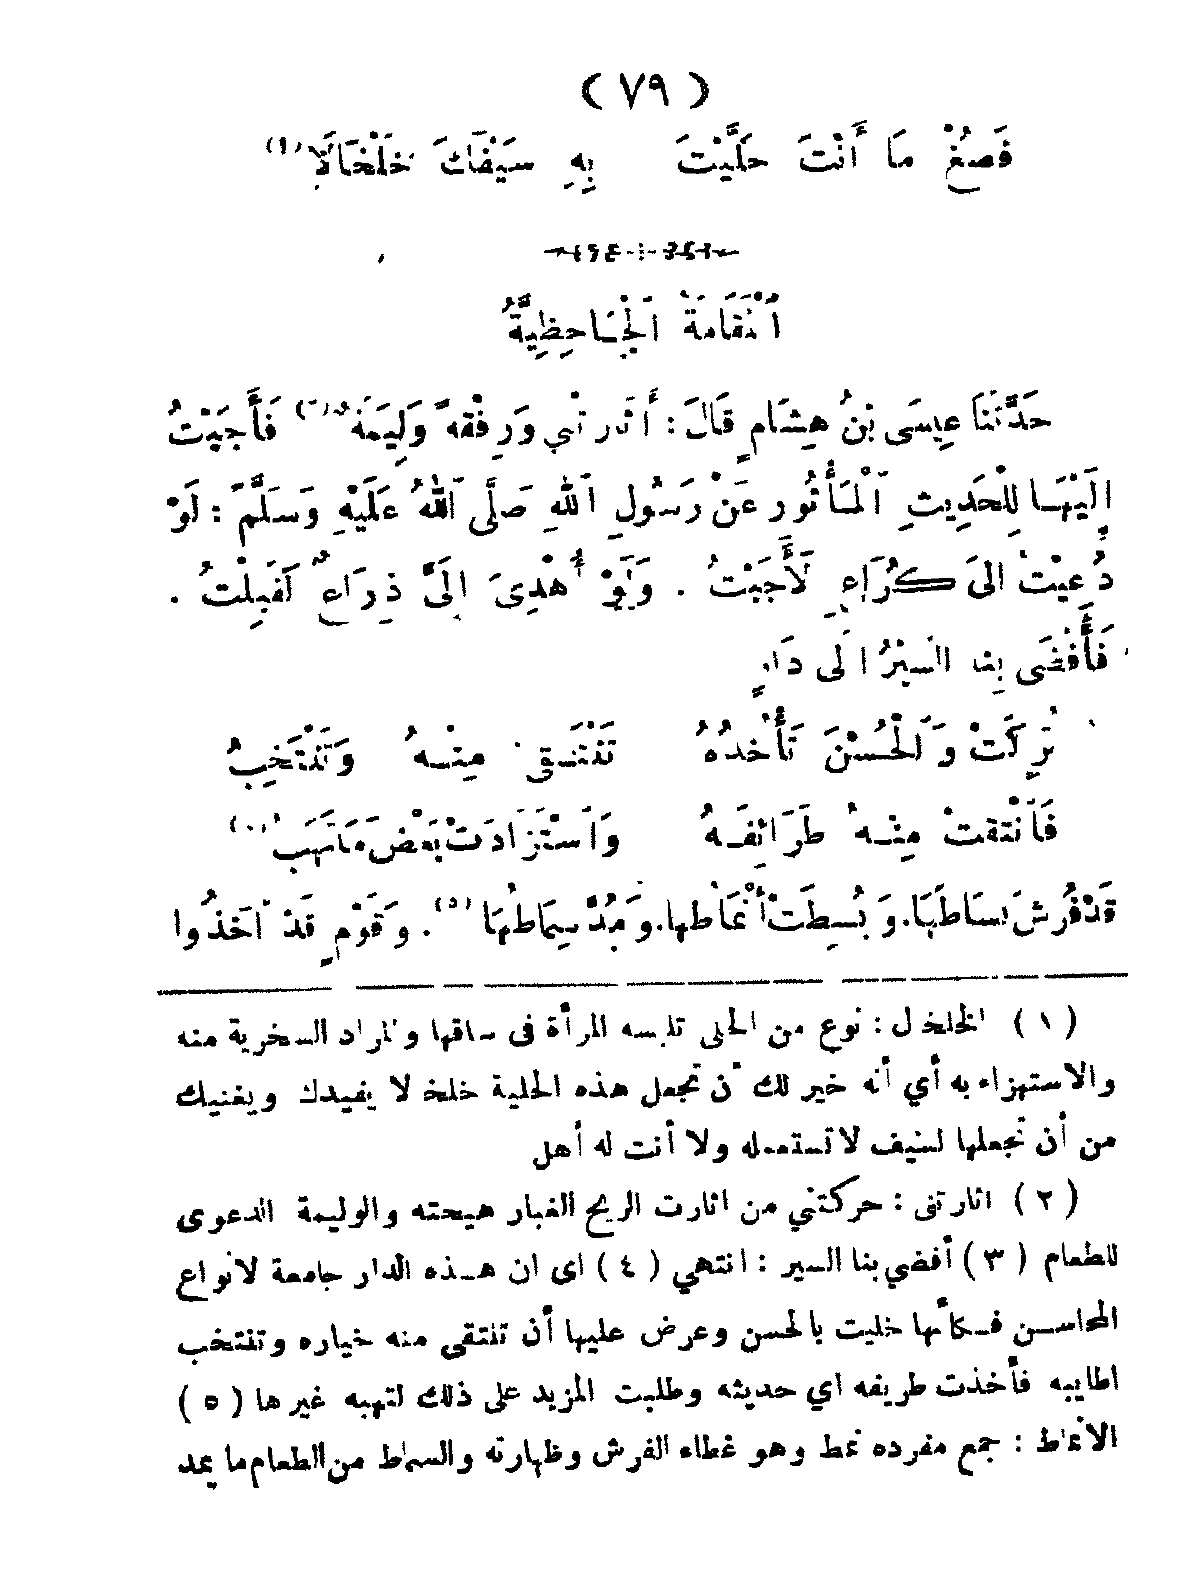 ( ٧٩ )
فَصُغْ مَا أَنْتَ حَلَّيْتَ بِهِ سَيْفَكَ خَلْخَالَا (١)
اَلْمَقَامَةُ الْجَاحِظِيَّةُ
حَدَّثَنَا عِيسَى بْنُ هِشَامٍ قَالَ : أَثَارَتْنِي وَرِفْقَةً وَلِيمَةٌ (٢) فَأَجَبْتُ
إِلَيْهَا لِلْحَدِيثِ الْمَأْثُورِ عَنْ رَسُولِ اللهِ صَلَّى اللهُ عَلَيْهِ وَسَلَّمَ : لَوْ
دُعِيتُ إلَى كُرَاعٍ لَأَجَبْتُ . وَلَوْ أُهْدِىَ إِلَىَّ ذِرَاعٌ لَقَبِلْتُ .
فَأَفْضَى بِنَا السَّيْرُ إلَى دَارٍ
تُرِكَتْ وَالْحُسْنَ تَأْخُذُهُ تَنْتَقِى مِنْهُ وَتَنْتَخِبُ
فَانْتَقَتْ مِنْهُ طَرَائِفَهُ وَاسْتَزَادَتْ بَعْضَ مَا تَهَبُ
قَدْ فُرِشَ بِسَاطُهَا . وَبُسِطَتْ أَنْمَاطُهَا . وَمُدَّ سِمَاطُهَا (٥) . وَقَوْمٍ قَدْ أَخَذُوا
(١) الخلخال : نوع من الحلى تلبسه المرأة فى ساقها والمراد السخرية منه
والاستهزاء به أي أنه خير لك أن تجعل هذه الحلية خلخالا يفيدك ويغنيك
من أن تجعلها لسيف لا تستعمله ولا أنت له أهل
(٢) اثارتنى : حركتني من اثارت الريح الغبار هيجته والوليمة الدعوى
للطعام (٣) أفضي بنا السير : انتهي (٤) اى ان هذه الدار جامعة لانواع
المحاسن فكأنها خليت بالحسن وعرض عليها أن تنتقى منه خياره وتنتخب
اطايبه فأخذت طريفه اي حديثه وطلبت المزيد على ذلك لتهبه غيرها (٥)
الانماط : جمع مفرده نمط وهو غطاء الفرش وظهارته والسماط من الطعام ما يمد